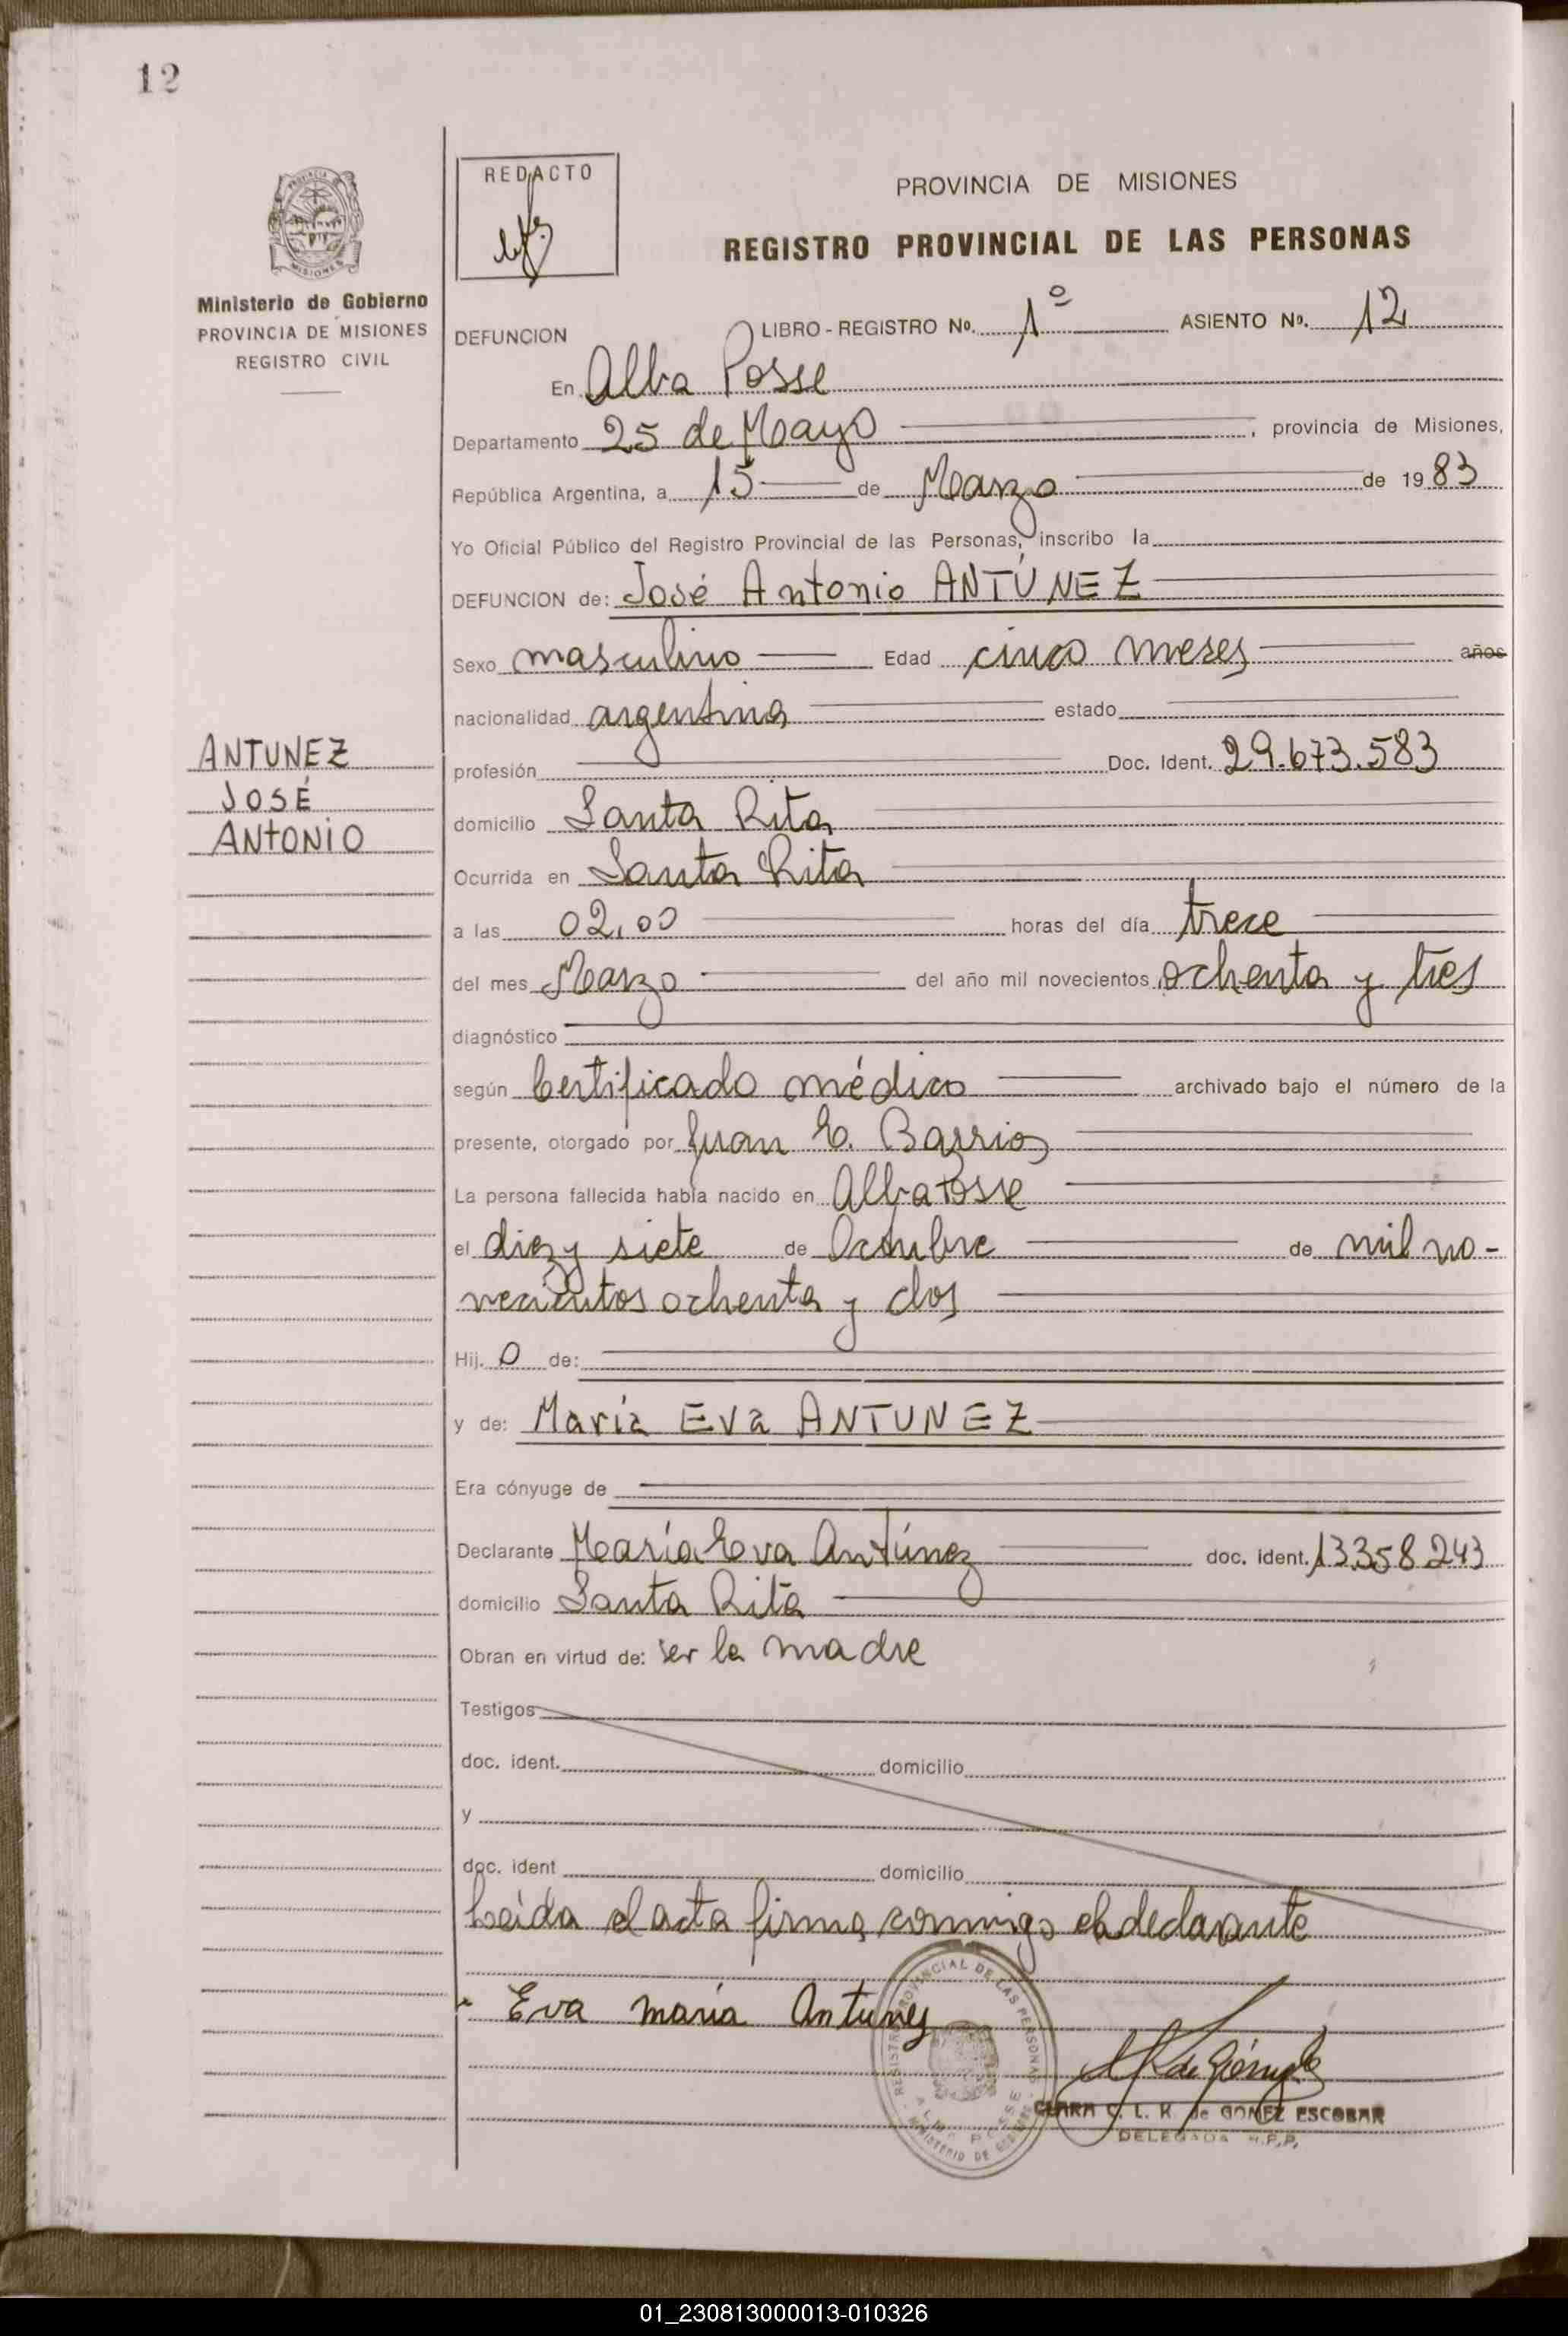 12
REDACTO
PROVINCIA DE MISIONES
REGISTRO PROVINCIAL DE LAS PERSONAS
Ministerio de Gobierno
PROVINCIA DE MISIONES
REGISTRO CIVIL
DEFUNCION LIBRO - REGISTRO Nº. 1º ASIENTO Nº. 12
En Alba Posse
Departamento 25 de Mayo, provincia de Misiones,
República Argentina, a 15 de Marzo de 1983
Yo Oficial Público del Registro Provincial de las Personas, inscribo la
DEFUNCION de: José Antonio ANTÚNEZ
Sexo masculino Edad cinco meses años
nacionalidad argentina estado
ANTUNEZ
JOSÉ
ANTONIO
profesión Doc. Ident. 29.673.583
domicilio Santa Rita
Ocurrida en Santa Rita
a las 02,00 horas del día trece
del mes Marzo del año mil novecientos ochenta y tres
diagnóstico
según Certificado médico archivado bajo el número de la
presente, otorgado por Juan E. Barrios
La persona fallecida había nacido en Alba Posse
el diez y siete de Octubre de mil no-
vecientos ochenta y dos
Hij. o de:
y de: María Eva ANTUNEZ
Era cónyuge de
Declarante María Eva Antúnez doc. ident. 13.358.243
domicilio Santa Rita
Obran en virtud de: ser la madre
Testigos
doc. ident. domicilio
y
doc. ident domicilio
Leída el acta firma conmigo el declarante
Eva maria Antunez
REGISTRO PROVINCIAL DE LAS PERSONAS
ALBA POSSE
MINISTERIO DE GOBIERNO
CLARA C. L. K. de GOMEZ ESCOBAR
DELEGADA R.P.P.
01_230813000013-010326